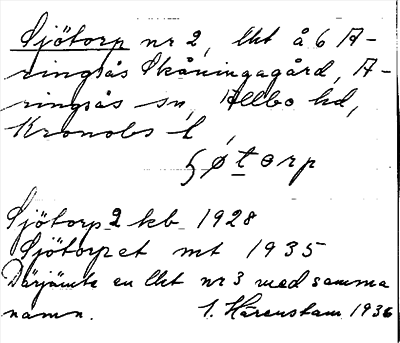 Sjötorp nr 2, lht å 6 A-
ringsås Skåningagård, A-
ringsås sn, Allbo hd,
Kronobs l
ʃøtorp
Sjötorp 2 kb 1928
Sjötorpet mt 1935
Därjämte en lht nr 3 med samma
namn. I. Härenstam 1936